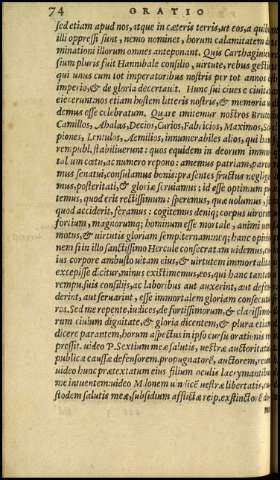 74 ORATIO
sed etiam apud nos, atque in cæteris terris, ut eos, a quibus
illi oppressi sunt, nemo nominet, horum calamitatem
minationi illorum omnes anteponant. Quis Carthaginien
sium pluris fuit Hannibale consilio, uirtute, rebus gestis
qui unus cum tot imperatoribus nostris per tot annos
imperio, & de gloria decertauit. Hunc sui ciues e ciuita
eiecerunt: nos etiam hostem litteris nostris, & memoria ui
demus esse celebratum. Quare imitemur nostros Brutos
Camillos, Ahalas, Decios, Curios, Fabricios, Maximos, Sci
piones, Lentulos, Aemilios, innumerabiles alios, qui hanc
rempub. stabiliuerunt: quos equidem in deorum immor
tal um cœtu, ac numero repono: amemus patriam, parea
mus senatui, consulamus bonis: præsentes fructus neglig
mus, posteritati, & gloriæ seruiamus: id esse optimum pu
temus, quod erit rectissimum: speremus, quæ uolumus, sed
quod acciderit, feramus: cogitemus deniq; corpus uirorum
fortium, magnorumq; hominum esse mortale, animi uero
motus, & uirtutis gloriam sempiternam: neq; hanc opinio
nem si in illo sanctissimo Hercule consecratam uidemus, cu
ius corpore ambusto uitam eius, & uirtutem immortalitas
excepisse dicitur, minus existimemus, eos, qui hanc tantam
remp. suis consiliis, ac laboribus aut auxerint, aut defen
derint, aut seruarint, esse immortalem gloriam consecu
ros. Sed me repente, iudices, de fortissimorum, & clarissimo
rum ciuium dignitate, & gloria dicentem, & plura etiam
dicere parantem, horum aspectus in ipso cursu orationis re
pressit. uideo P. Sextium meæ salutis, uestræ auctoritatis
publicæ caussæ defensorem, propugnatorẽ, auctorem, reum
uideo hunc prætextatum eius filium oculis lacrymantibus
me intuentem: uideo Milonem uindicẽ uestræ libertatis, cu
stodem salutis meæ, subsidium afflictæ reip. exstinctorẽ